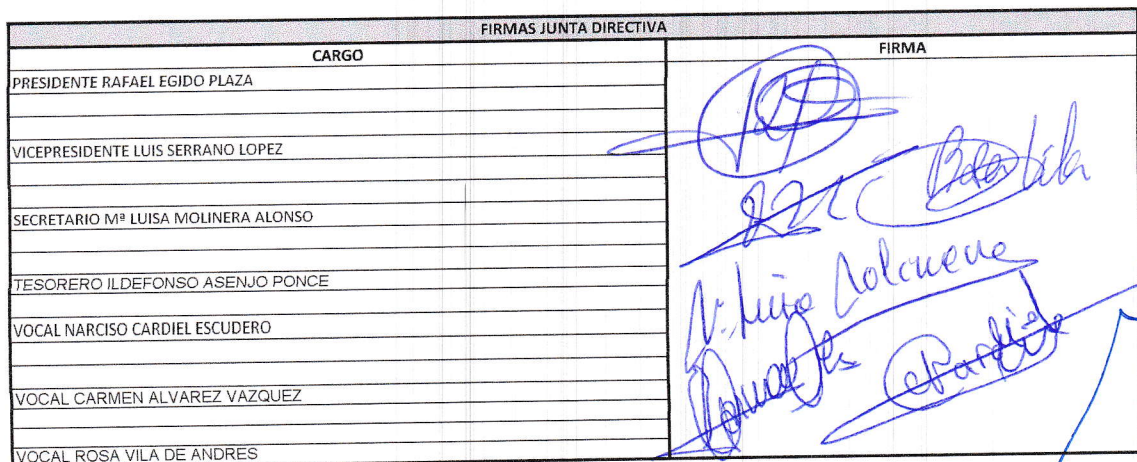 FIRMAS JUNTA DIRECTIVA
CARGO FIRMA
PRESIDENTE RAFAEL EGIDO PLAZA
VICEPRESIDENTE LUIS SERRANO LOPEZ
SECRETARIO Mª LUISA MOLINERA ALONSO
TESORERO ILDEFONSO ASENJO PONCE
VOCAL NARCISO CARDIEL ESCUDERO
VOCAL CARMEN ALVAREZ VAZQUEZ
VOCAL ROSA VILA DE ANDRES